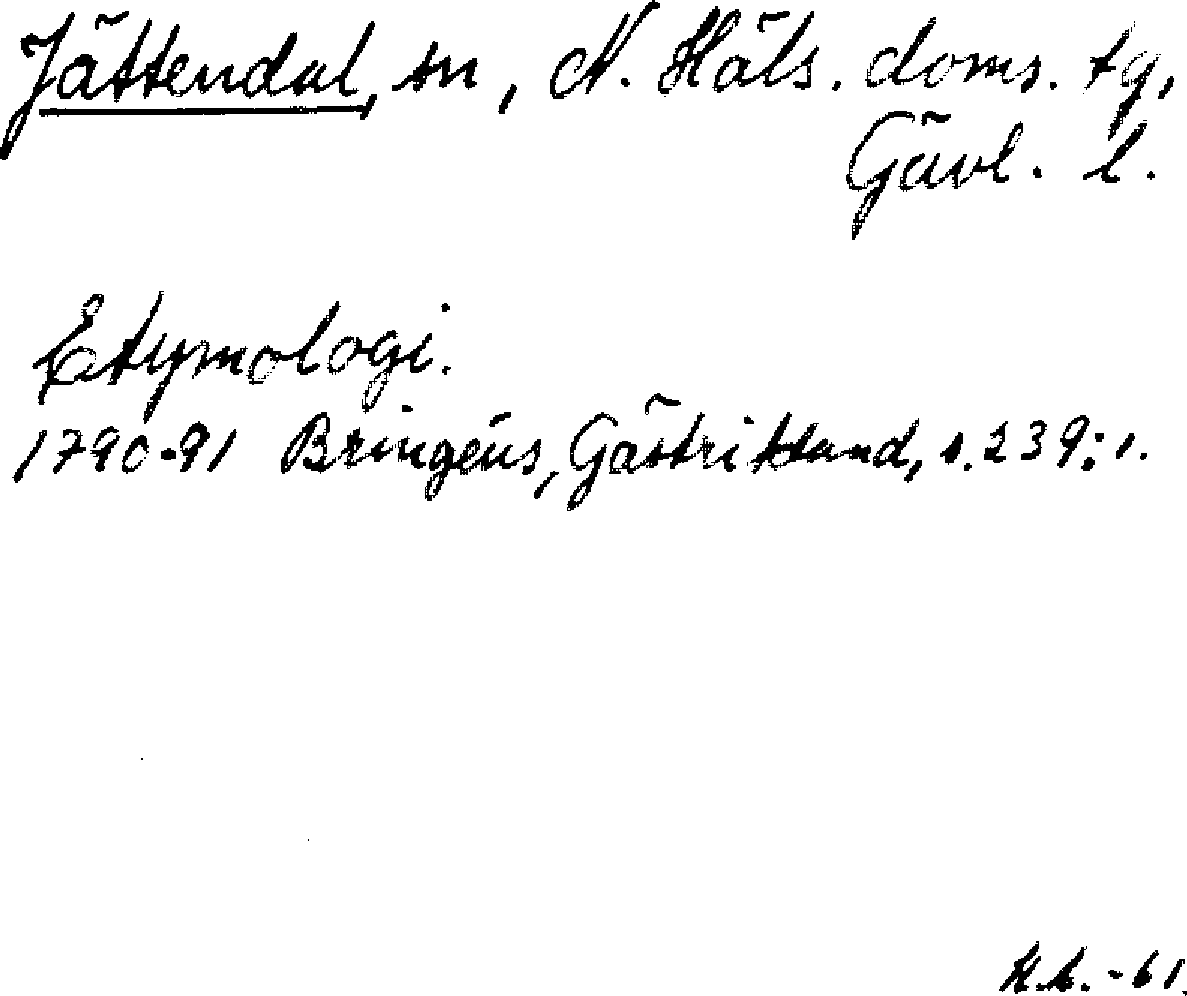 Jättendal, sn, N. Häls. doms. tg,
Gävl. l.
Etymologi.
1790-91 Bringéus, Gästrikland, s. 239:1.
-61.